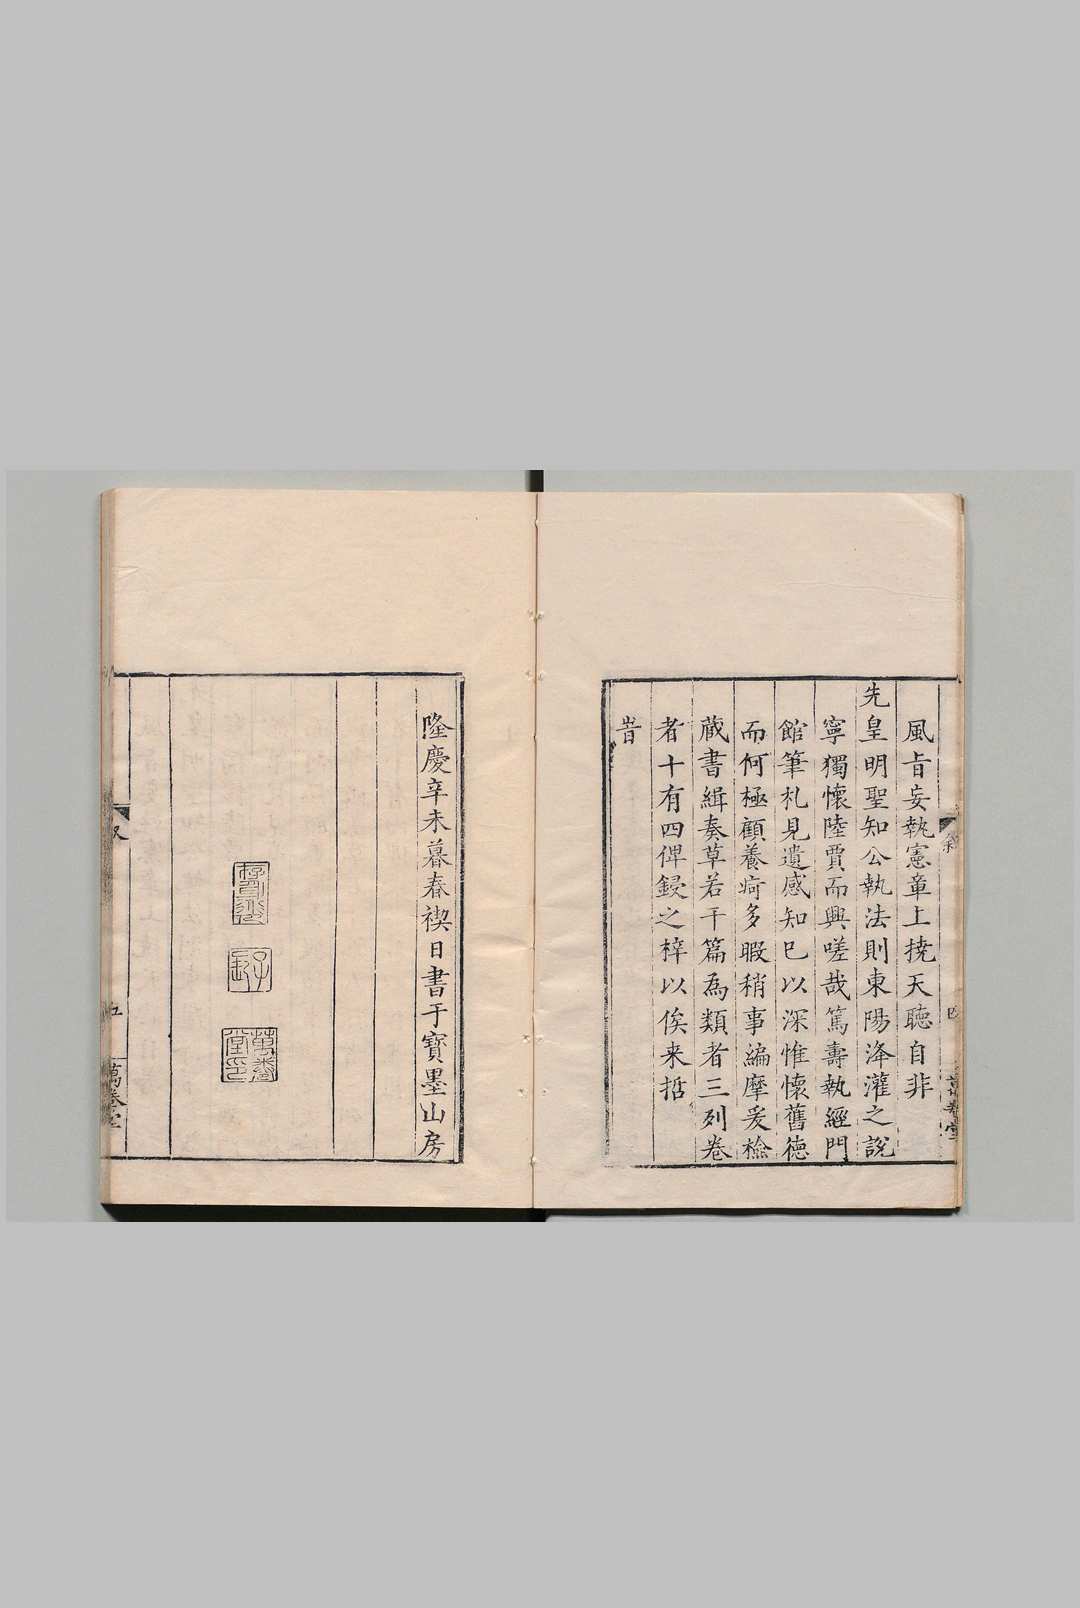 風旨妄執憲章上撓天聽自非
先皇明聖知公執法則東陽洚灌之說
寧獨懷陸賈而興嗟哉篤壽執經門
館筆札見遺感知已以深惟懷舊德
而何極顧養疴多暇稍事編摩爰檢
藏書緝奏草若干篇為類者三列卷
者十有四俾鋟之梓以俟来哲
旹
隆慶辛未暮春禊日書于寶墨山房
萬卷堂印
五
萬卷堂